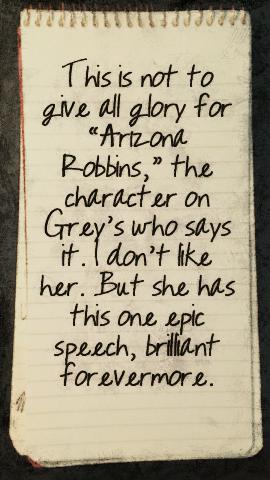 This is not to
give all glory for
“Arizona
Robbins,” the
character on
Grey’s who says
it. I don’t like
her. But she has
this one epic
speech, brilliant
forevermore.